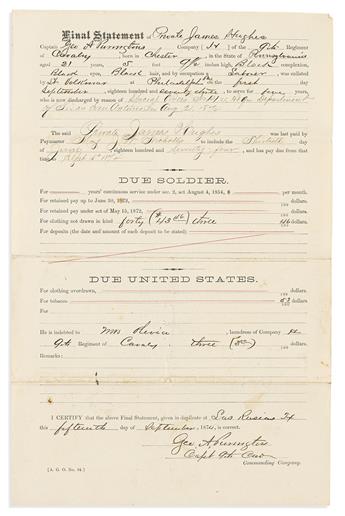 Final Statement of Private James Hughes
Captain Geo A Purington's Company (H) of the 9th Regiment
of Cavalry born in Chester in the State of Pennsylvania
aged 21 years, 5 feet inches high, Black
Black eyes, Black hair, and by occupation a was enlisted
by Lt at Philadelphia on the first day of
September eighteen hundred and seventy to serve five years,
who is discharged by reason of Special Order Department
of
The said Private James Hughes was last paid by
Paymaster Maj to include the Thirtieth day of
June eighteen hundred and seventy four, and has pay due from that
to
DUE SOLDIER.
For years' continuous service under sec. 2, act August 4, 1854, $ per month.
For retained pay up to June 30, 1872, dollars.
For retained pay under act of May 15, 1872, dollars.
For clothing not drawn in kind forty three dollars.
For deposits (and the date and amount of each deposit to be stated)
DUE UNITED STATES.
For clothing overdrawn, dollars.
For tobacco dollars.
He is indebted to Mrs , laundress of Company H
9th Regiment of Cavalry three dollars.
Remarks:
I CERTIFY that the above Final Statement, given in duplicate at Tx
this fifteenth day of September, 1874, is correct.
Geo A Purington
Capt 9th Cav
Commanding Company.
[A. G. O. No. 94.]